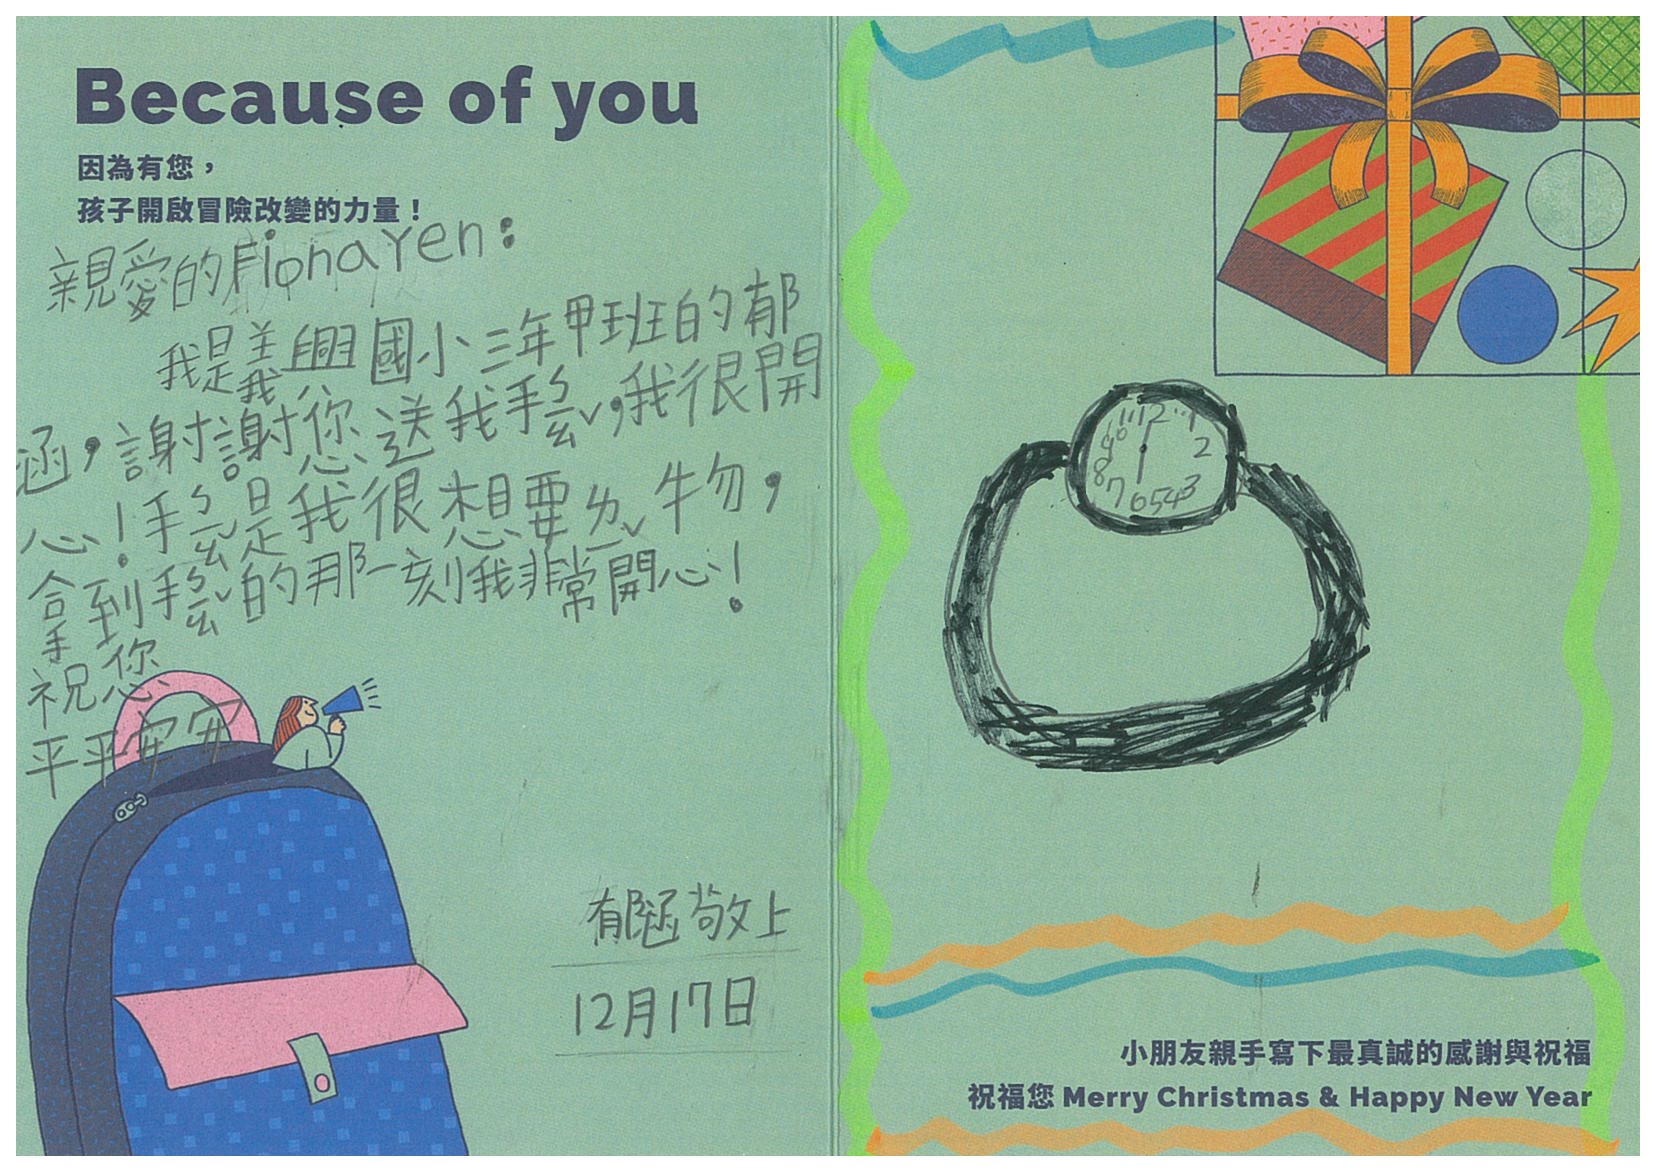 Because of you
因為有您，
孩子開啟冒險改變的力量！
親愛的Fiona Yen：
我是義興國小三年甲班的郁
涵，謝謝您送我手ㄅㄧㄠˇ，我很開
心！手ㄅㄧㄠˇ是我很想要ㄌㄧˇ物，
拿到手ㄅㄧㄠˇ的那一刻我非常開心！
祝您
平平安安
郁涵敬上
12月17日
12 1 2 3 4 5 6 7 8 9 10 11
小朋友親手寫下最真誠的感謝與祝福
祝福您 Merry Christmas & Happy New Year